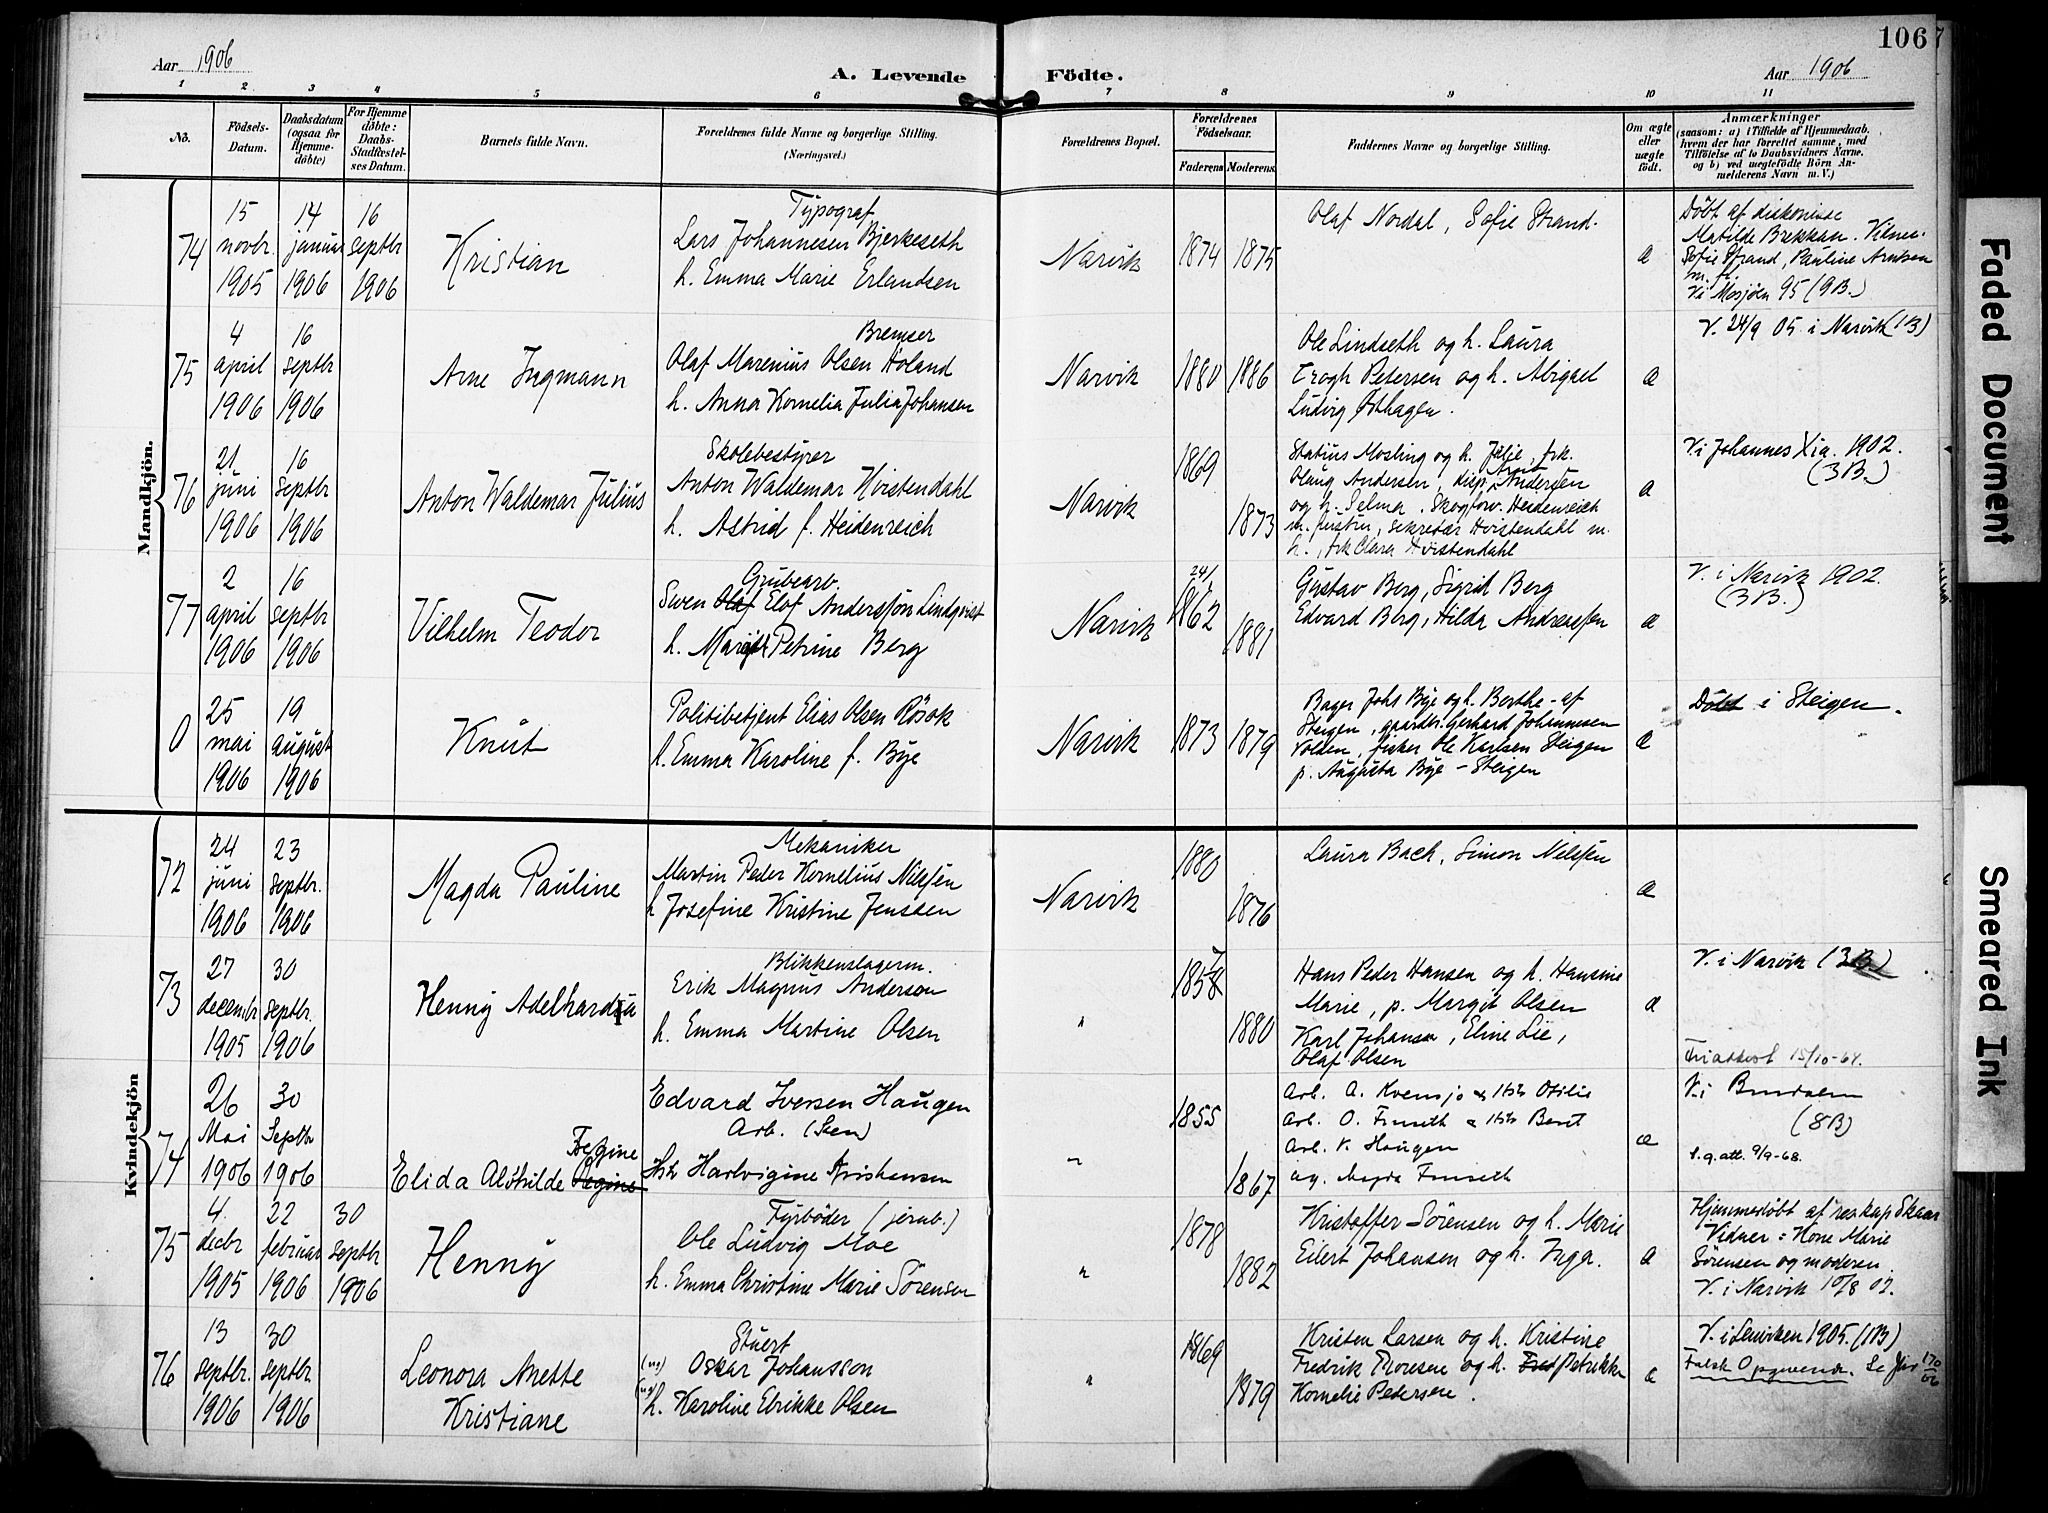 Aar 1906
A. Levende Födte.
Aar 1906
106
1 2 3 4 5 6 7 8 9 10 11
No.
Födsels-Datum.
Daabsdatum (ogsaa for Hjemme-döbte)
For Hjemme döbte: Daabs-Stadfæstel-ses Datum.
Barnets fulde Navn.
Forældrenes fulde Navne og borgerlige Stilling.
(Næringsvei.)
Forældrenes Bopæl.
Forældrenes Födselsaar.
Faderens Moderens
Faddernes Navne og borgerlige Stilling.
Om ægte eller uægte födt.
Anmærkninger
(saasom: a) i Tilfælde af Hjemmedaab.
hvem der har forrettet samme, med
Tilföielse af to Daabsvidners Navne.
og b) ved uegtefödte Börn An-
melderens Navn m. V.)
Mandkjön.
74
15 novbr. 1905
14 januar 1906
16 septbr 1906
Kristian
Typograf
Lars Johannesen Bjerkeseth
h. Emma Marie Erlandsen
Narvik
1874 1875
Olaf Nordal, Sofie Strand.
æ
Döbt af diskonisse
Matilde Brekkan. Vidner:
Sofie Strand, Pauline Arntsen
m. fl.
V. i Mosjöen 95 (9B.)
75
4 april 1906
16 septbr 1906
Arne Ingmann
Bremser
Olaf Marenius Olsen Holand
h. Anna Kornelia Julia Johansen
Narvik
1880 1886
Ole Lindseth og h. Laura
Trogh Petersen og h. Abigael
Ludvig Østhagen.
æ
V. 24/9 05 i Narvik (1B)
76
21 juni 1906
16 septbr 1906
Anton Waldemar Julius
Skolebestyrer
Anton Waldemar Hvistendahl
h. Astrid f. Heidenreich
Narvik
1869 1873
Statius Mosling og h. Julie, frk.
Olaug Andersen, disp. Arnt Andersen
og h. Selma. Skogforv. Heidenreich
m. hustru, sekretær Hvistendahl m.
h., frk Clara Hvistendahl
æ
V. i Johannes Xia. 1902.
(3B.)
77
2 april 1906
16 septbr 1906
Vilhelm Teodor
Grubearb.
Swen Olaf Elof Andersson Lindqvist
h. Marie Petrine Berg
Narvik
24/, 1862 1881
Gustav Berg, Sigrid Berg
Edvard Berg, Hilda Andreassen
æ
V. i Narvik 1902.
(3B.)
0
25 mai 1906
19 august 1906
Knut
Politibetjent Elias Olsen Rösok
h. Emma Karoline f. Bye
Narvik
1873 1879
Bager Johs Bye og h. Berthe - af
Steigen, gaardbr. Gerhard Johannesen
Volden, fisker Ole Karlsen Steigen
p. Augusta Bye - Steigen
æ
Döbt i Steigen.
Kvindekjön
72
24 juni 1906
23 septbr. 1906
Magda Pauline
Mekaniker
Martin Peder Kornelius Nilssen
h Josefine Kristine Jenssen
Narvik
1880 1876
Laura Bach, Simon Nilssen
æ
73
27 decembr 1905
30 septbr. 1906
Henny Adelhardia
Blikkenslagerm.
Erik Magnus Anderson
h. Emma Martine Olsen
"
1858 7 1880
Hans Peder Hansen og h. Hansine
Marie, p. Margit Olsen
Karl Johansen, Eline Lie,
Olaf Olsen
æ
V. i Narvik (3B.)
Friattest 15/10-64.
74
26 Mai 1906
30 Septbr 1906
Elida Alöhilde Regine
Edvard Iversen Haugen
Arb. (Sten)
Hstr Hartvigine Kristiansen
"
1855 1867
Arb. A. Kvensjo & Hstr Otilie
Arb. O. Finseth & Hstr Beret
Arb. K. Haugen
ug. Magda Finseth
æ
V. i
(8B)
s.g.att. 9/9-68.
75
4. decbr 1905
22 februar 1906
30 septbr 1906
Henny
Fyrböder (jernb.)
Ole Ludvig Moe
h. Emma Christine Marie Sörensen
"
1878 1882
Kristoffer Sörensen og h. Marie
Eilert Johansen og h. Inga.
æ
Hjemmedöbt af res kap Skaar
Vidner: Kone Marie
Sörensen og moderen.
V. i Narvik 10/8 02.
76
13 septbr. 1906
30 septbr 1906
Leonora Anette
Kristiane
Stuert
(ug) Oskar Johansson
(ug) h. Karoline Elrikke Olsen
"
1869 1879
Kristen Larsen og h. Kristine
Fredrik Thoresen og h. Petrikke
Kornelie Pedersen.
æ
V. i Lenviken 1905. (1B)
Falsk Opgivende. Se Jnr 170/06
Faded Document
Smeared Ink